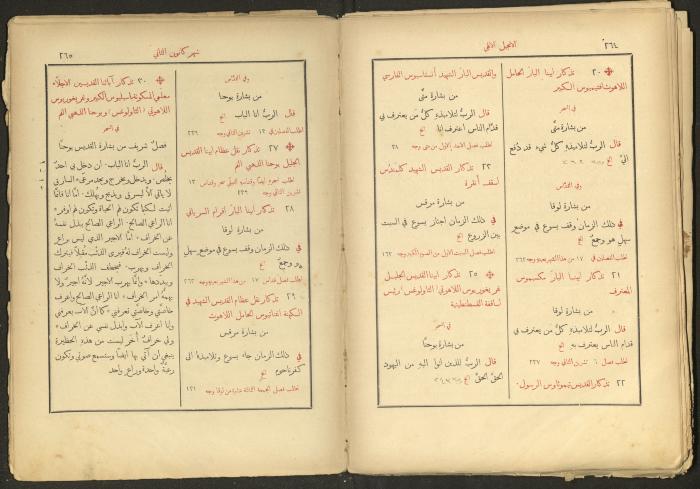 ٢٦٤
الانجيل الالهي
٢٠ تذكار ابينا البار الحامل
اللاهوت افتيميوس الكبير
في السحر
من بشارة متّى
قال الربُّ لتلاميذهِ كلُّ شيء قد دُفع
اليَّ
في القدّاس
من بشارة لوقا
في ذلك الزمان وقف يسوع في موضع
سهلٍ هو وجمعٌ الخ
٢١ تذكار ابينا البار مكسيموس
المعترف
من بشارة لوقا
قال الربُّ لتلاميذهِ كلُّ من يعترف بي
قدام الناس يعترف بهِ الخ
اطلب فصل ٦ تشرين الثاني وجه ٢٢٧
٢٢ تذكار القديس تيموثاوس الرسول.
والقديس البار الشهيد أنستاسيوس الفارسي
من بشارة متّى
قال الربُّ لتلاميذهِ كلُّ من يعترف بي
قدَّام الناس اعترف انا الخ
اطلب فصل الاحد الاول من متى وجه ٢٨
٢٣ تذكار القديس الشهيد اكليمنضُس
اسقف أنقرة
من بشارة مرقس
في ذلك الزمان اجتاز يسوع في السبت
بين الزروع الخ
٢٥ تذكار ابينا القديس الجليل
غريغوريوس اللاهوتي (الثاولوغس) رئيس
اساقفة القسطنطينية
في السحر
من بشارة يوحنَّا
قال الربُّ للذين أتوا اليهِ من اليهود
الحقَّ الحقَّ الخ
شهر كانون الثاني
٢٦٥
وفي القدَّاس
من بشارة يوحنا
قال الربُّ انا الباب الخ
اطلب الفصلين في ١٣ تشرين الثاني وجه ٢٣٦
٢٧ تذكار نقل عظام ابينا القديس
الجليل يوحنا الذهبي الفم
تشرين الثاني وجه ٢٣٦
٢٨ تذكار ابينا البار افرام السرياني
من بشارة لوقا
في ذلك الزمان وقف يسوع في موضع سهلٍ
هو وجمعٌ الخ
٢٩ تذكار نقل عظام القديس الشهيد في
الكهنة اغناتيوس الحامل اللاهوت
من بشارة مرقس
في ذلك الزمان جاء يسوع وتلاميذهُ الى
كفرناحوم الخ
اطلب فصل الجمعة الثالثة عشرة من لوقا وجه ١٣١
٣٠ تذكار آبائنا القديسين الاجلّاء
معلمي المسكونة باسيليوس الكبير وغريغوريوس
اللاهوتي (الثاولوغس) ويوحنا الذهبي الفم
في السحر
فصلٌ شريف من بشارة القديس يوحنا
قال الربُّ انا الباب. ان دخل بي احدٌ
يخلُص. ويدخل ويخرج ويجد مرعًى * السارق
لا يأتي الَّا ليسرق ويذبح ويهلك. امَّا انا فانما
اتيت لتكون لهم الحياة وتكون لهم اوفر *
انا الراعي الصالح. الراعي الصالح يبذل نفسهُ
عن الخراف * امَّا الاجير الذي ليس براعٍ
وليست الخراف لهُ فيرى الذئب مقبلًا فيترك
الخراف ويهرب. فيخطف الذئب الخراف
ويبددها * وانَّما يهرب الاجير لأنهُ اجيرٌ ولا
يهمهُ امر الخراف * انا الراعي الصالح واعرف
خاصَّتي وخاصَّتي تعرفني * كما أنَّ الآب يعرفني
وانا اعرف الآب وابذل نفسي عن الخراف *
ولي خرافٌ أُخر ليست من هذه الحظيرة
ينبغي ان آتي بها ايضًا وستسمع صوتي وتكون
رعيَّةٌ واحدة وراعٍ واحد